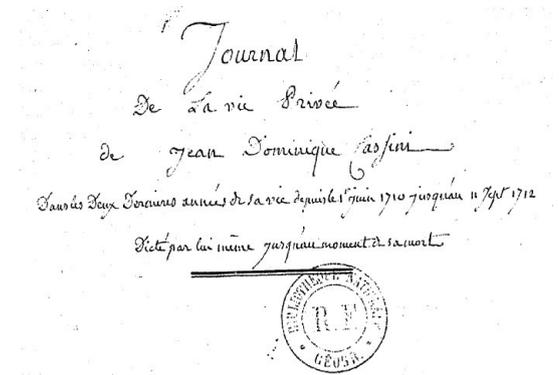 Journal
De La vie Privée
de Jean Dominique Cassini
Dans les Deux Dernieres années de sa vie depuis le 1er juin 1710 jusqu'au 11 Sept 1712
Dicté par lui même jusqu'au moment de sa mort
BIBLIOTHEQUE NATIONALE
R.F.
GÉOGR.